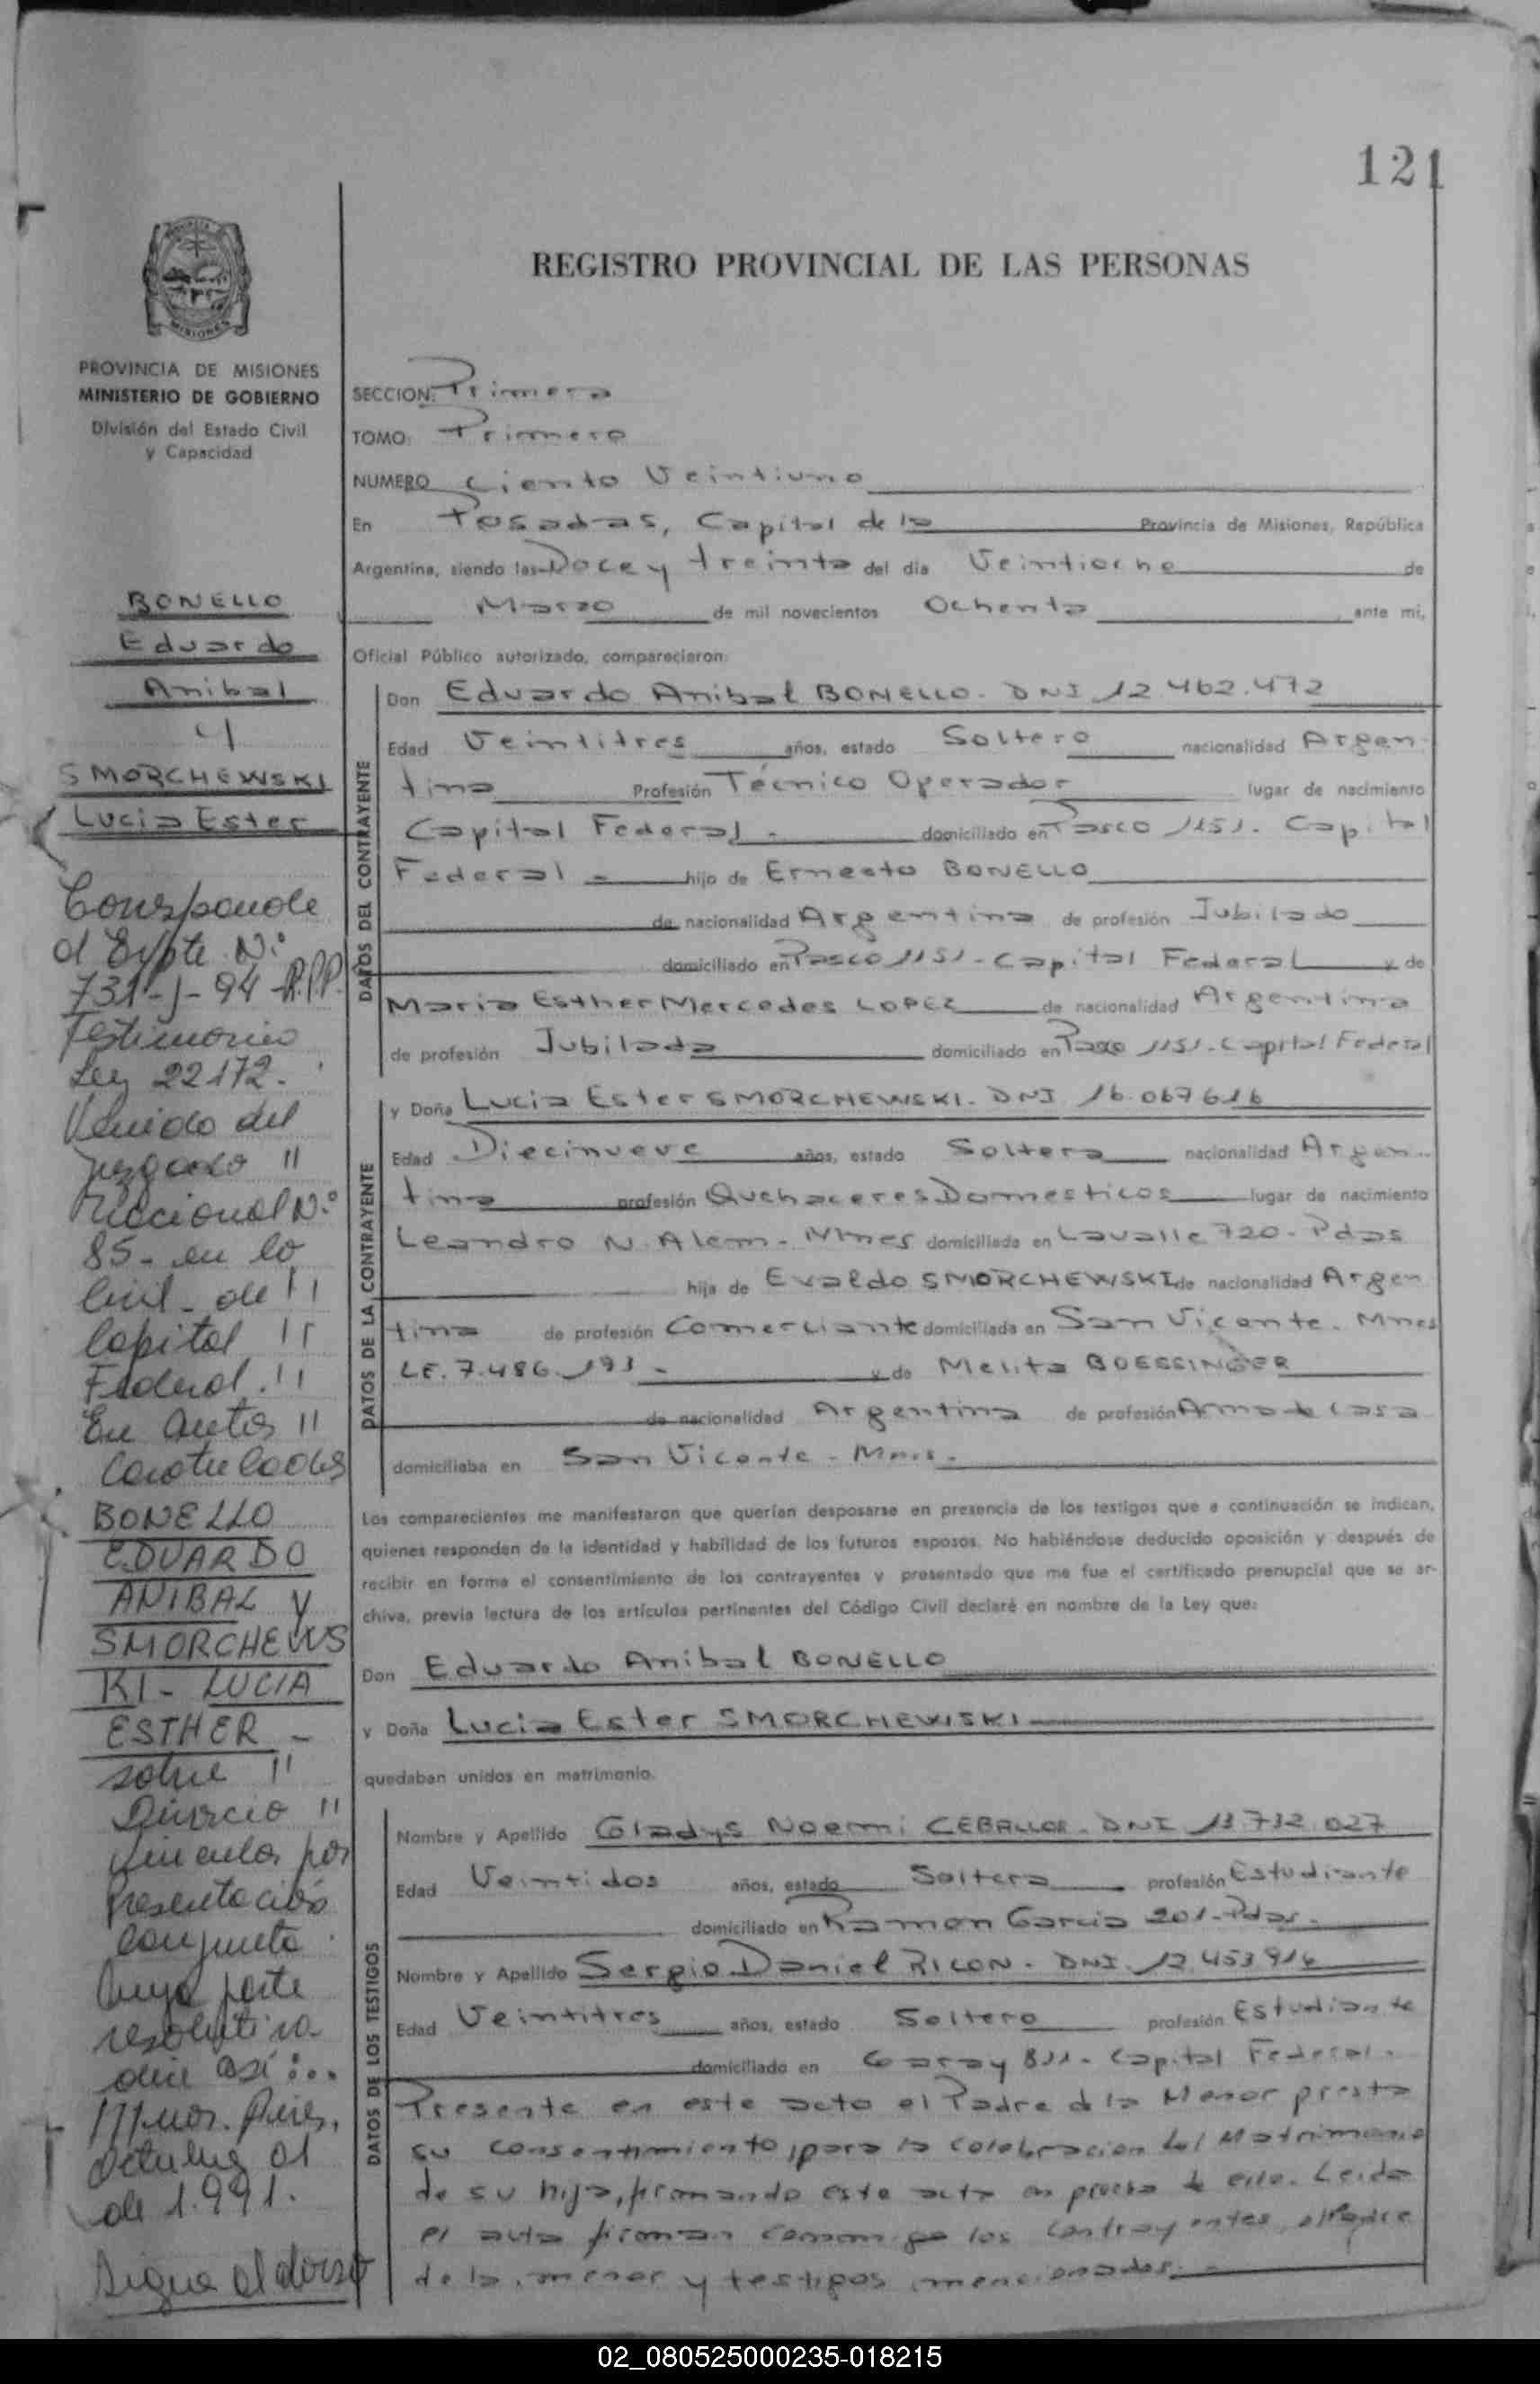 121
REGISTRO PROVINCIAL DE LAS PERSONAS
MISIONES
PROVINCIA DE MISIONES
MINISTERIO DE GOBIERNO
División del Estado Civil
y Capacidad
BONELLO
Eduardo
Anibal
y
SMORCHEWSKI
Lucia Ester
Corresponde
al Expte. N.°
731-J-94-R.P.P.
Testimonio
Ley 22172.
Venido del
Juzgado "
Naccional N.°
85- en lo
Civil - de "
Capital "
Federal. "
En Autos "
Caratulados
BONELLO
EDUARDO
ANIBAL y
SMORCHEWS
KI - LUCIA
ESTHER -
sobre "
Divorcio "
Vincular por
Presentación
Conjunta
Cuya parte
resolutiva
dice así:..
Aires,
Octubre 01
de 1.991.
Sigue al dorso
SECCION: Primera
TOMO: Primero
NUMERO Ciento Veintiuno
En Posadas, Capital de la Provincia de Misiones, República
Argentina, siendo las Doce y treinta del día Veintiocho de
Marzo de mil novecientos Ochenta ante mí,
Oficial Público autorizado, comparecieron:
DATOS DEL CONTRAYENTE
Don Eduardo Anibal BONELLO - DNI 12.462.472
Edad Veintitres años, estado Soltero nacionalidad Argen-
tina Profesión Técnico Operador lugar de nacimiento
Capital Federal - domiciliado en Pasco 1151 - Capital
Federal - hijo de Ernesto BONELLO
de nacionalidad Argentina de profesión Jubilado
domiciliado en Pasco 1151 - Capital Federal y de
Maria Esther Mercedes LOPEZ de nacionalidad Argentina
de profesión Jubilada domiciliado en Pasco 1151 - Capital Federal
DATOS DE LA CONTRAYENTE
y Doña Lucia Ester SMORCHEWSKI - DNI 16.067616
Edad Diecinueve años, estado Soltera nacionalidad Argen-
tina profesión Quehaceres Domesticos lugar de nacimiento
Leandro N. Alem - Mnes domiciliada en Lavalle 720 - Pdas
hija de Evaldo SMORCHEWSKI de nacionalidad Argen
tina de profesión Comerciante domiciliada en San Vicente - Mnes
LE. 7.486.193 - y de Melita BOESSINGER
de nacionalidad Argentina de profesión Ama de Casa
domiciliaba en San Vicente - Mnes -
Los comparecientes me manifestaron que querían desposarse en presencia de los testigos que a continuación se indican,
quienes responden de la identidad y habilidad de los futuros esposos. No habiéndose deducido oposición y después de
recibir en forma el consentimiento de los contrayentes y presentado que me fue el certificado prenupcial que se ar-
chiva, previa lectura de los artículos pertinentes del Código Civil declaré en nombre de la Ley que:
Don Eduardo Anibal BONELLO
y Doña Lucia Ester SMORCHEWISKI
quedaban unidos en matrimonio.
DATOS DE LOS TESTIGOS
Nombre y Apellido Gladys Noemi CEBALLOS - DNI 13.732.027
Edad Veintidos años, estado Soltera profesión Estudiante
domiciliado en Ramon Garcia 201 - Pdas -
Nombre y Apellido Sergio Daniel RICON - DNI. 12.453916
Edad Veintitres años, estado Soltero profesión Estudiante
domiciliado en Garay 811 - Capital Federal -
Presente en este acto el Padre d la Menor presta
su consentimiento para la celebracion del Matrimonio
de su hija, firmando este acta en prueba de ello. Leida
el acta firman conmigo los contrayentes, el Padre
de la menor y testigos mencionados. -
02_080525000235-018215